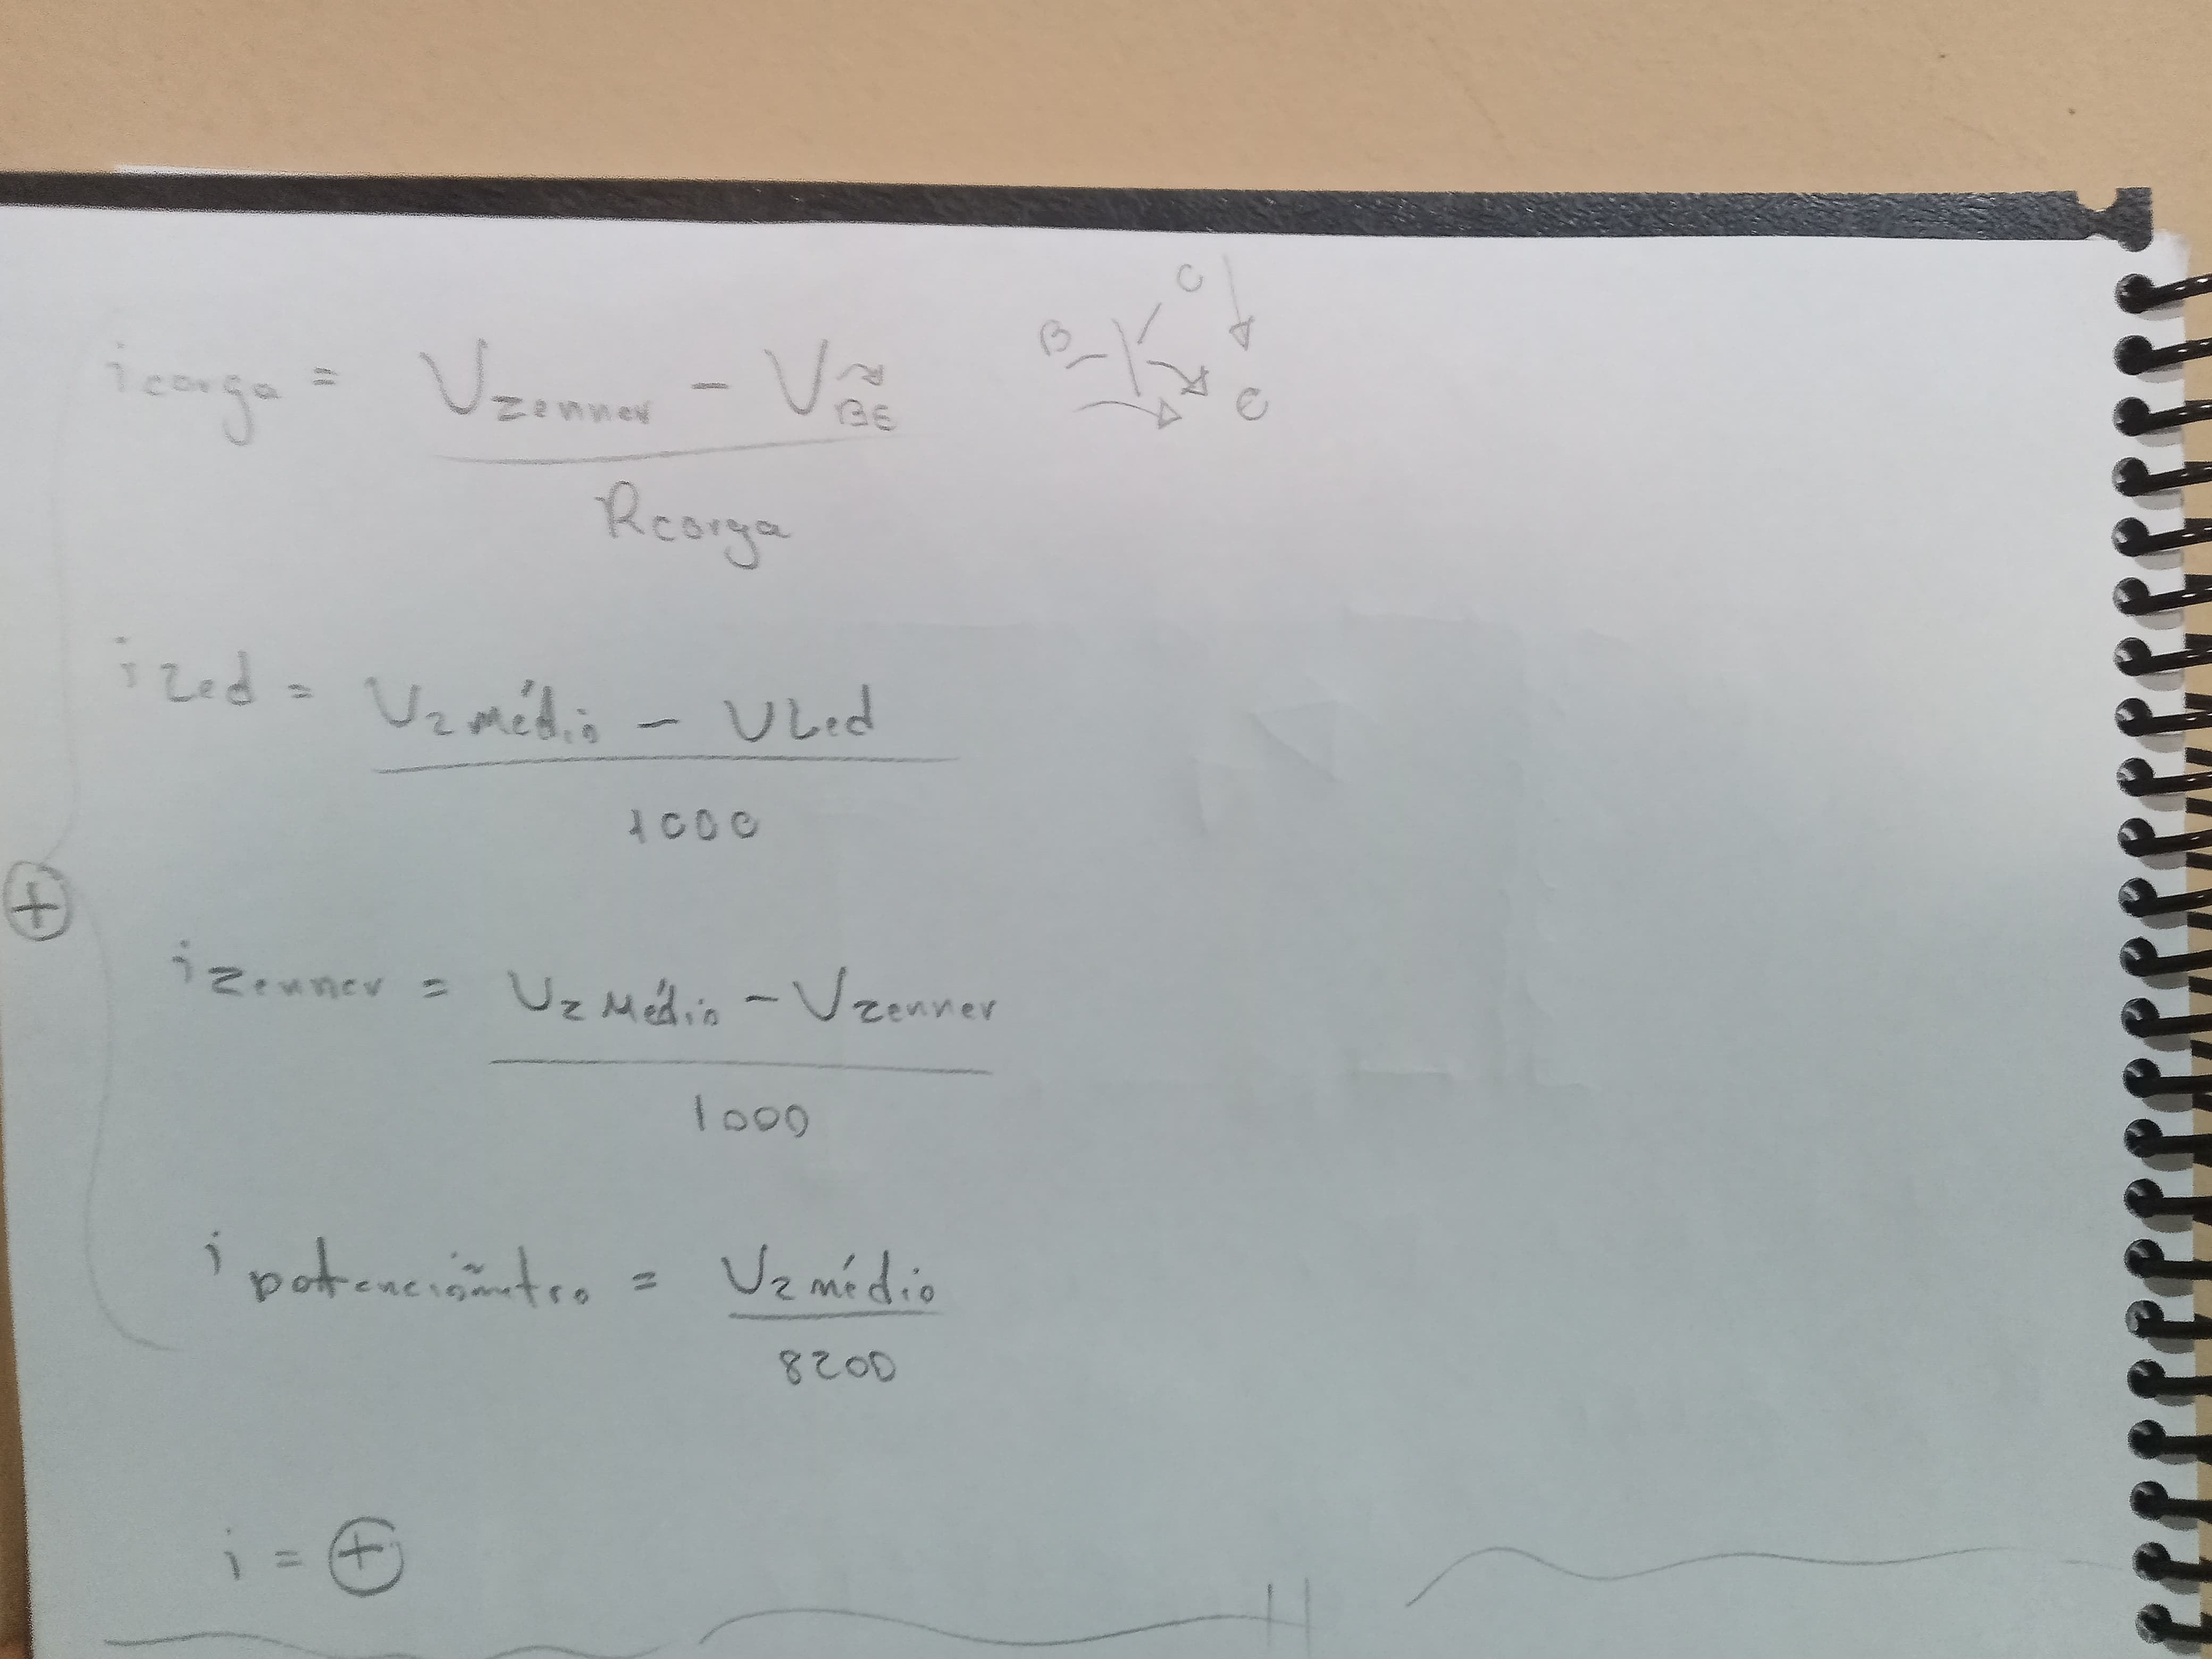 i carga = Vzenner - VBE
B C E
Rcarga
i Led = U2 médio - ULed
1000
+
i zenner = U2 Médio - Vzenner
1000
i potenciômetro = U2 médio
8200
i = +